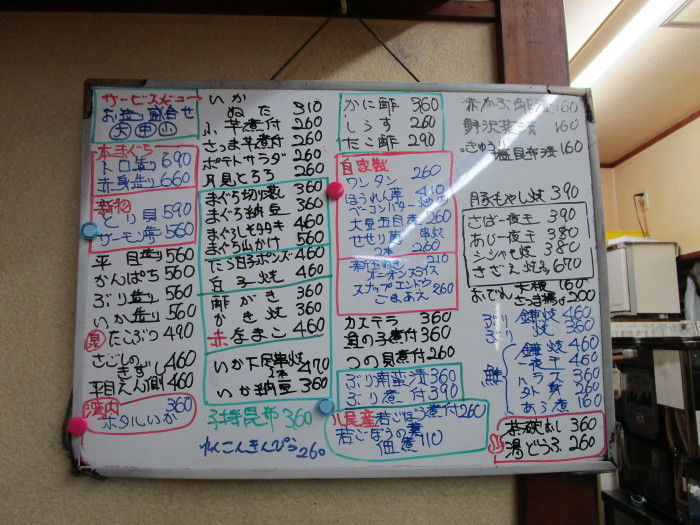 サービスメニュー
お造り盛合せ
大 中 小
本まぐろ
トロ造り 690
赤身造り 660
新物
とり貝 590
サーモン造り 560
平目造り 560
かんぱち 560
ぶり造り 560
いか造り 560
たこぶつ 490
さごしの
きずし 460
平目えん側 460
湾内
ホタルいか 360
いか
ぬた 310
小芋煮付 260
さつま芋煮付 260
ポテトサラダ 260
月見とろろ 260
まぐろ切落し 360
まぐろ納豆 360
まぐろしそタタキ 460
まぐろ山かけ 560
たら白子ポンズ 460
白子焼 460
酢がき 360
かき焼 360
赤なまこ 460
いか下足串焼
2本 470
いか納豆 360
子持昆布 360
れんこんきんぴら 260
かに酢 360
しらす 260
たこ酢 290
自家製
ワンタン 260
ほうれん草 410
ベーコンバター炒め
大豆五目煮 260
せせり 串焼
2本 260
新玉ねぎ 210
オニオンスライス
スナップエンドウ
ごまあえ 260
カステラ 360
真の子煮付 360
つの貝煮付 260
ぶり南蛮漬 360
ぶり煮付 390
八尾産 若ごぼう煮付 260
若ごぼうの葉
佃煮 110
赤かぶ酢漬 160
野沢菜漬 160
きゅうり
塩昆布漬 160
豚もやし炒 390
さば一夜干 390
あじ一夜干 380
シシャモ焼 380
さざえ焼 670
おでん 大根 160
さつま揚げ 200
ぶり 鎌焼 460
ぶり 焼 360
鮭
鎌焼 460
一夜干 460
ハラス 360
外身 260
あら煮 160
茶碗むし 360
湯どうふ 260